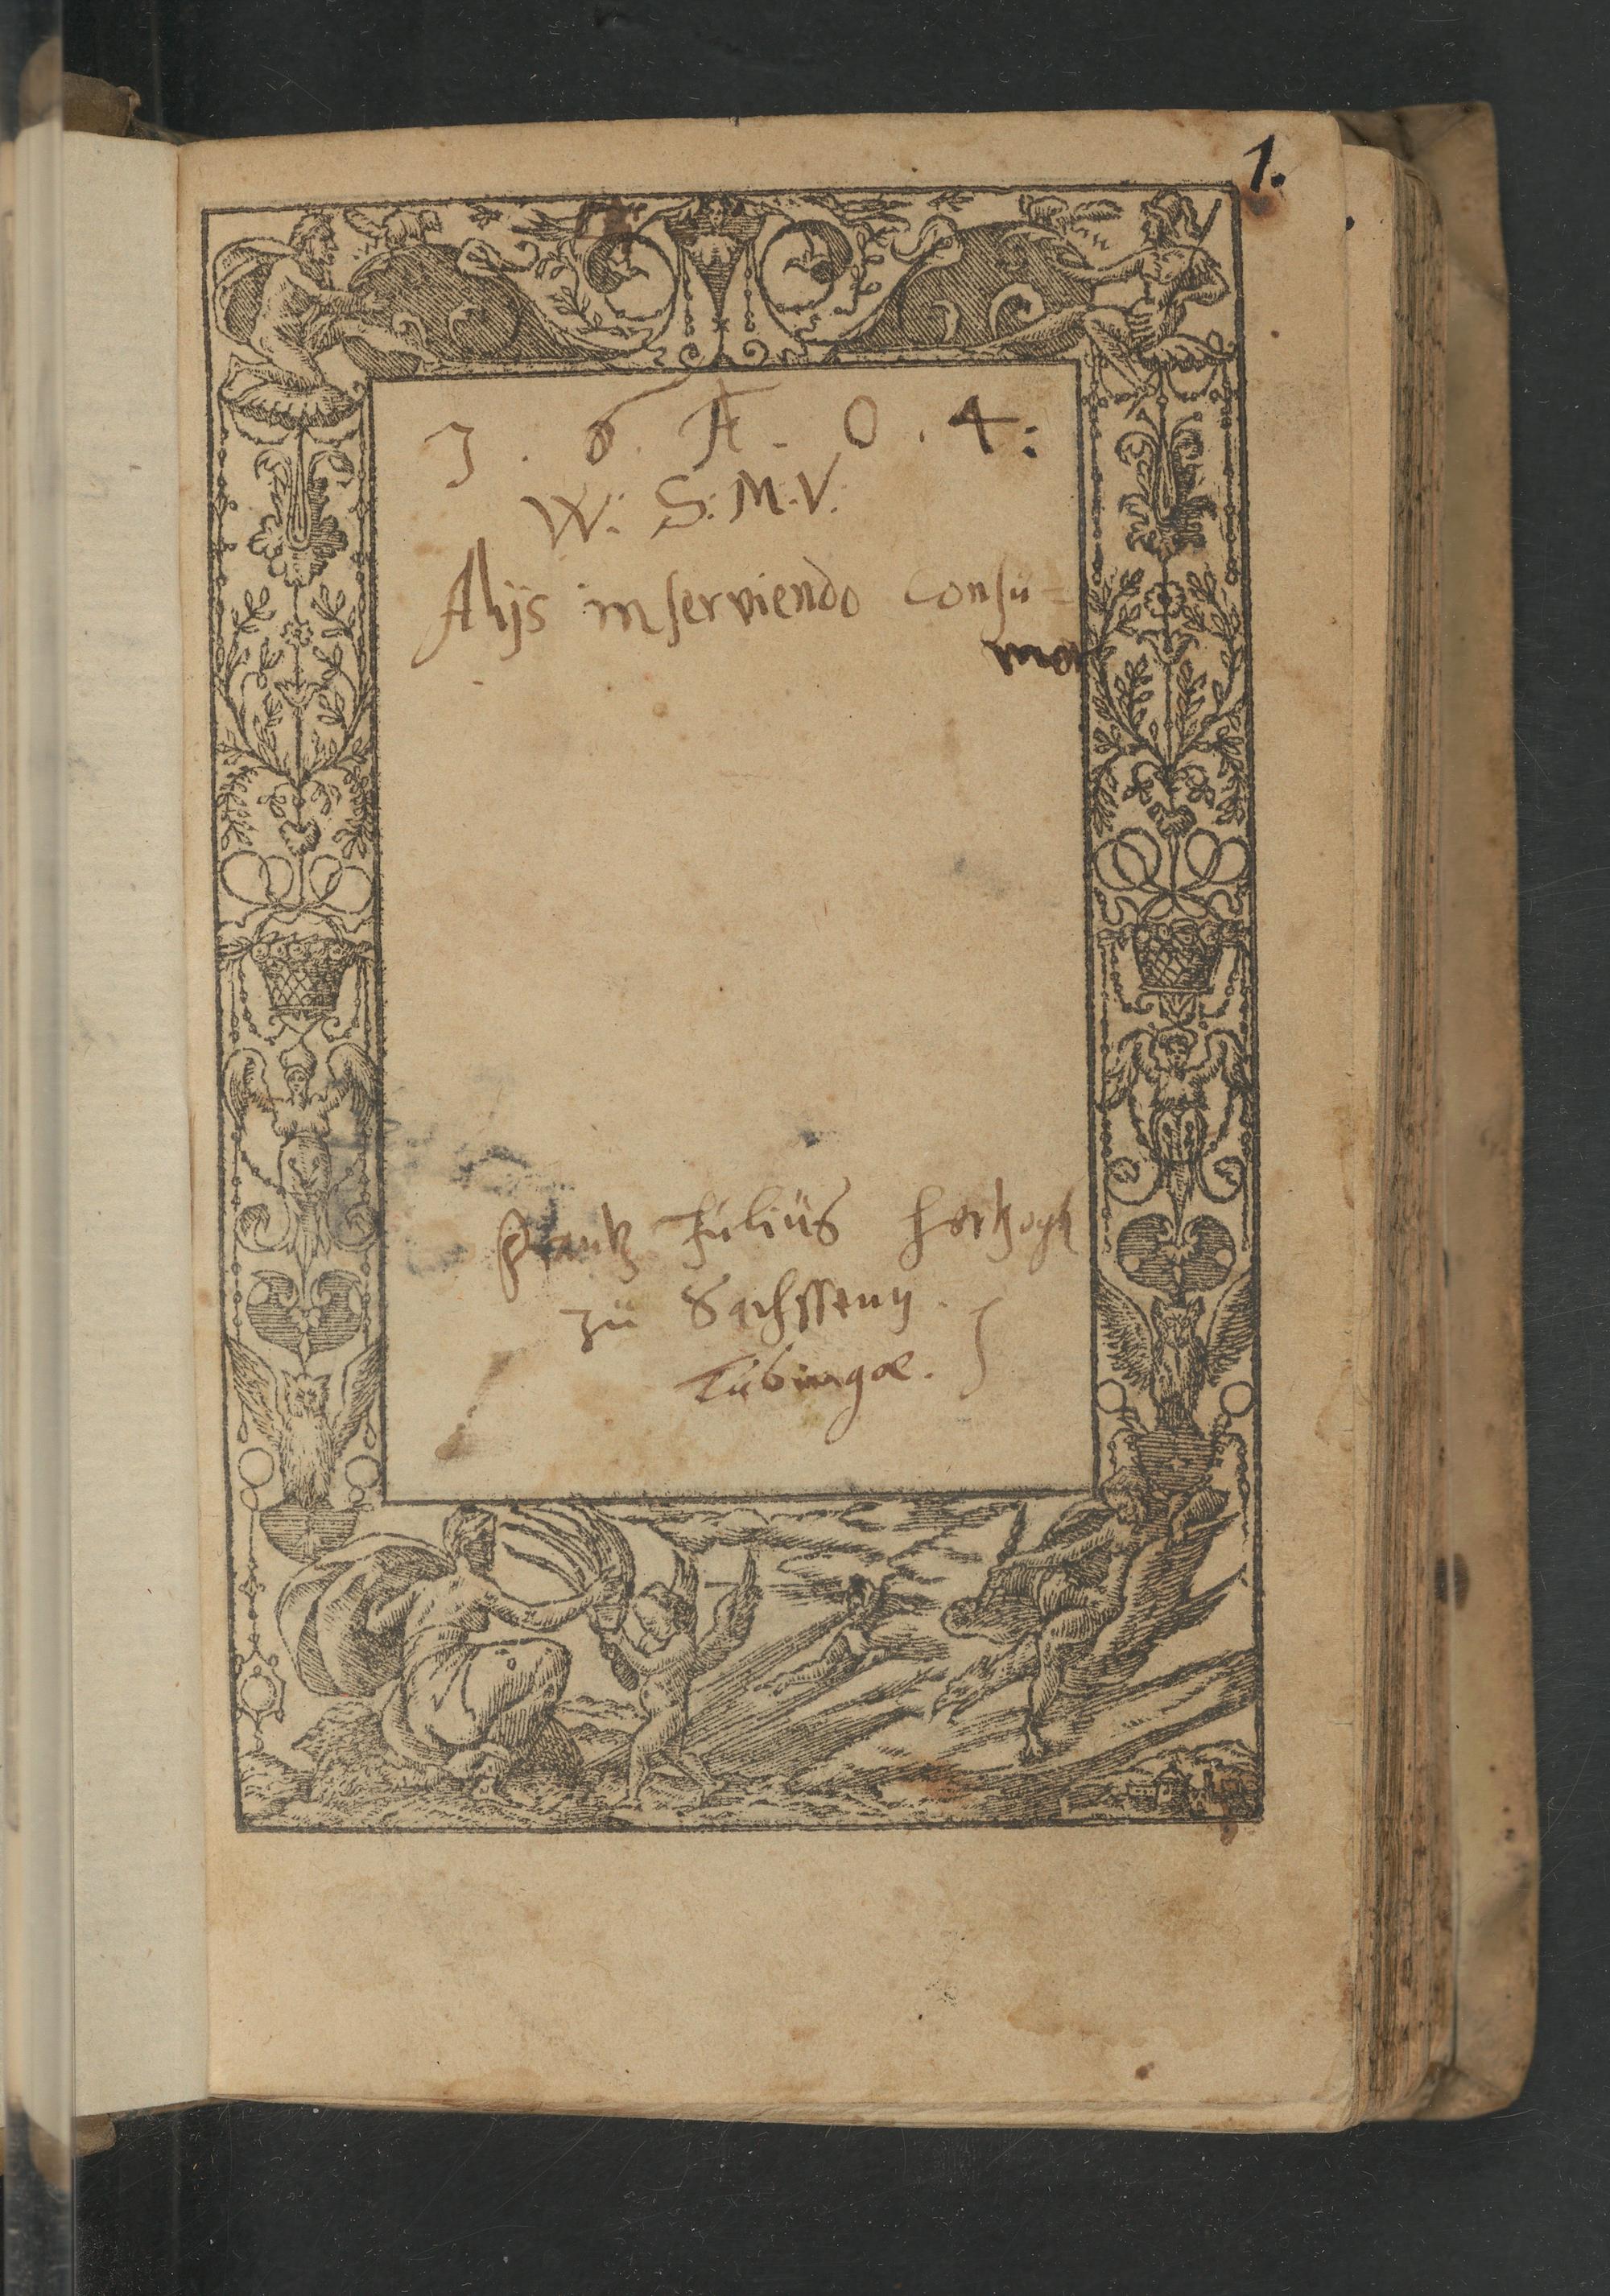 1.
1. 6. A. 0. 4:
W: S: M: V:
Alijs inserviendo consu=
mor
Frantz Julius Hertzogk
zu Sachssenn.
Tubingæ.